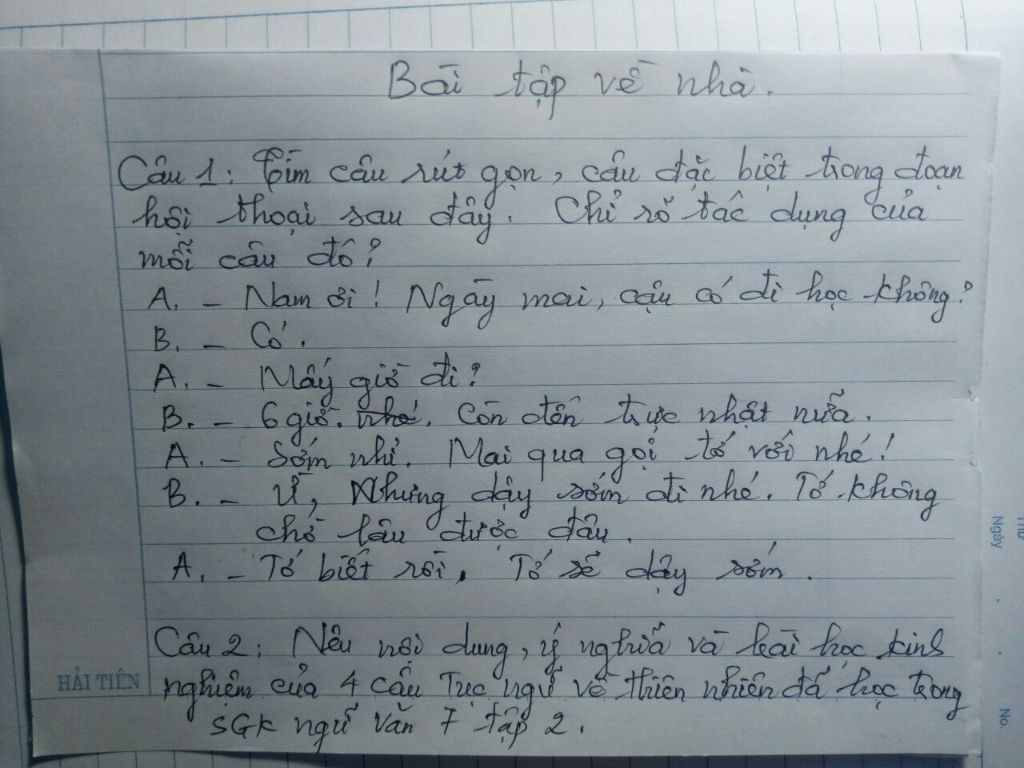 Bài tập về nhà.
Câu 1: Tìm câu rút gọn, câu đặc biệt trong đoạn
hội thoại sau đây. Chỉ rõ tác dụng của
mỗi câu đó?
A. - Nam ơi! Ngày mai, cậu có đi học không?
B. - Có.
A. - Mấy giờ đi?
B. - 6 giờ. nhé. Còn đến trực nhật nữa.
A. - Sớm nhỉ. Mai qua gọi tớ với nhé!
B. - Ừ, Nhưng dậy sớm đi nhé. Tớ không
chờ lâu được đâu.
A. - Tớ biết rồi, Tớ sẽ dậy sớm.
Câu 2: Nêu nội dung, ý nghĩa và bài học kinh
nghiệm của 4 câu Tục ngữ về thiên nhiên đã học trong
SGK ngữ văn 7 tập 2.
HẢI TIẾN
Thứ
Ngày
No.